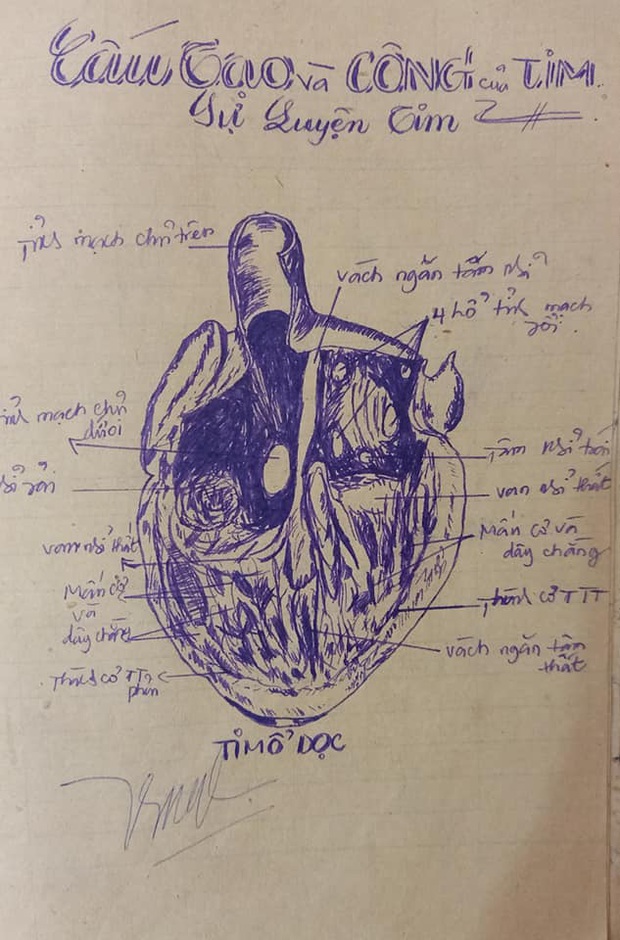 Cấu Tạo và CÔNG của TIM.
Sự Luyện Tim
Tĩnh mạch chủ trên
vách ngăn tâm nhĩ
4 lổ tĩnh mạch
phổi.
mạch chủ
dưới
Tâm nhĩ trái
van nhĩ thất
van nhĩ thất
Mấn cơ và
dây chằng
Mấn cơ
và
dây chằng
Thành cơ TTT
vách ngăn tâm
thất
Thành cơ TT
phải
TIM BỔ DỌC